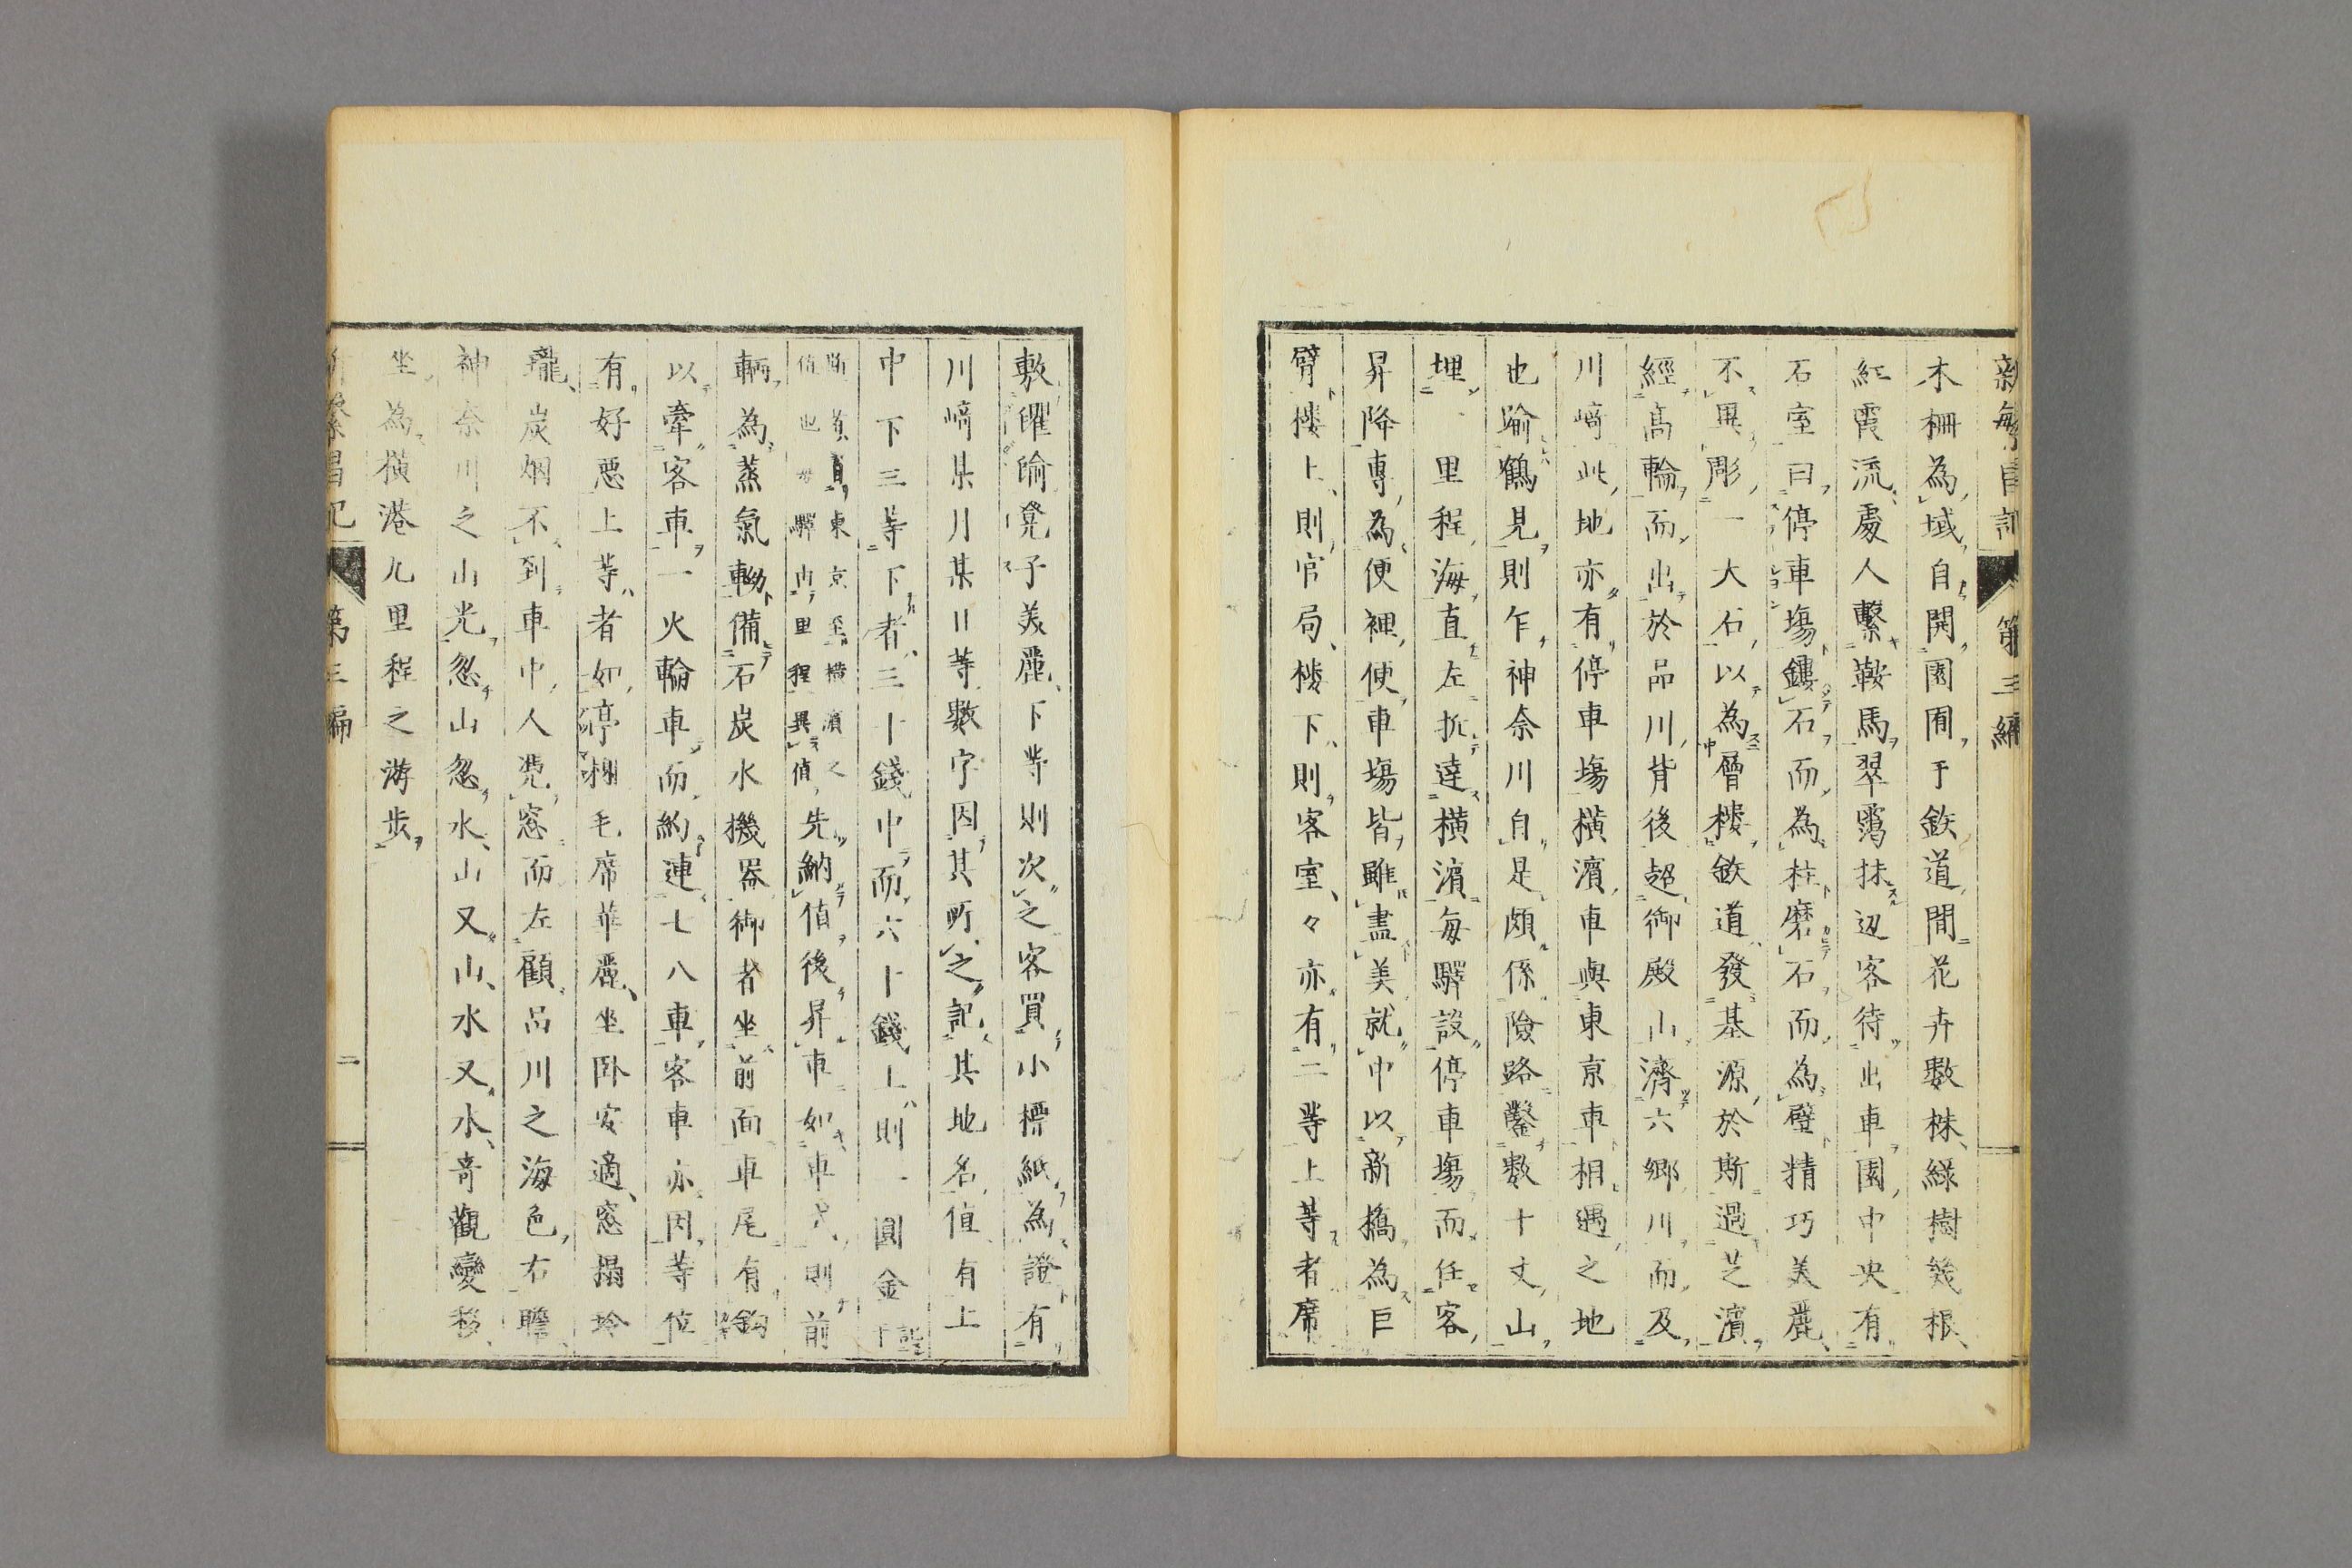 新繁昌記 第三編
木柵為域自開園囿于鉄道間花卉數株綠樹幾根
紅霞流處人繫鞍馬翠靄抹辺客待出車園中央有
石室曰停車場鏤石而為柱磨石而為壁精巧美麗
不異彫一大石以為層樓鉄道發基源於斯過芝濱
經高輪而出於品川背後超御殿山濟六郷川而及
川﨑此地亦有停車場橫濱車與東京車相遇之地
也踰鶴見則乍神奈川自是頗係險路鑿數十丈山
埋 里程海直左折達橫濱每驛設停車場而任客
昇降專為便裡便車場皆雖盡美就中以新橋為巨
臂樓上則官局樓下則客室々亦有二等上等者席
敷氍毹凳子美麗下等則次之客買小標紙為證有
川﨑某川某川等數字因其所之記其地名值有上
中下三等下者三十錢中而六十錢上則一圓金
東京至橫濱之
值也每驛由里程異值先納值後昇車如車式則前
輌為蒸氣輌備石炭水機器御者坐前面車尾有鈎
以牽客車一火輪車而約連七八車客車亦因等位
有好惡上等者如亭榭毛席華麗坐臥安適窓搨玲
瓏炭烟不到車中人凭窓而左顧品川之海色右瞻
神奈川之山光忽山忽水山又山水又水奇觀變移
坐為橫港九里程之游步
繁昌記 第三編 二